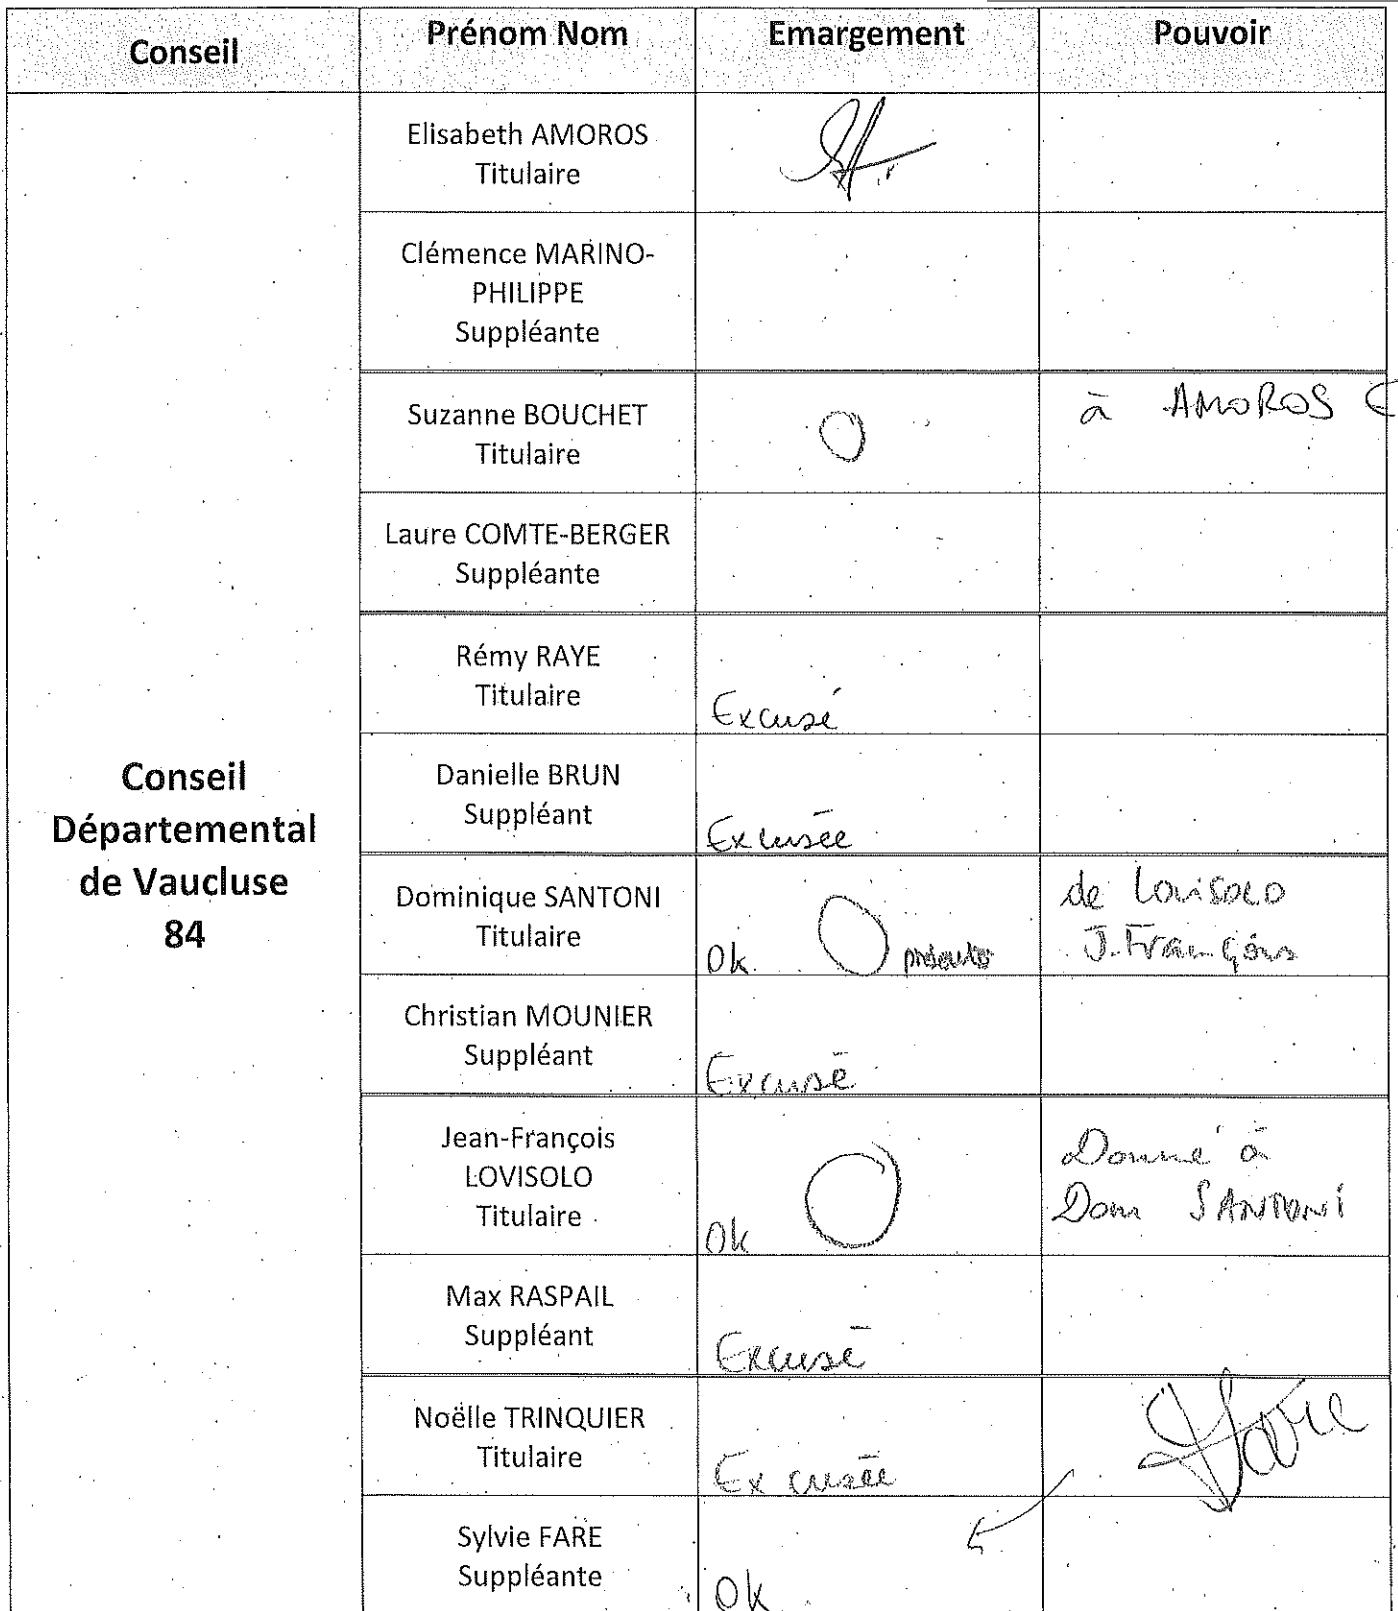 Conseil
Prénom Nom
Emargement
Pouvoir
Conseil
Départemental
de Vaucluse
84
Elisabeth AMOROS
Titulaire
Clémence MARINO-
PHILIPPE
Suppléante
Suzanne BOUCHET
Titulaire
à AMOROS E
Laure COMTE-BERGER
Suppléante
Rémy RAYE
Titulaire
Excusé
Danielle BRUN
Suppléant
Excusée
Dominique SANTONI
Titulaire
Ok
de Lovisolo
J.François
Christian MOUNIER
Suppléant
Excusé
Jean-François
LOVISOLO
Titulaire
Ok
Donné à
Dom SANTONI
Max RASPAIL
Suppléant
Excusé
Noëlle TRINQUIER
Titulaire
Excusée
Sylvie FARE
Suppléante
Ok